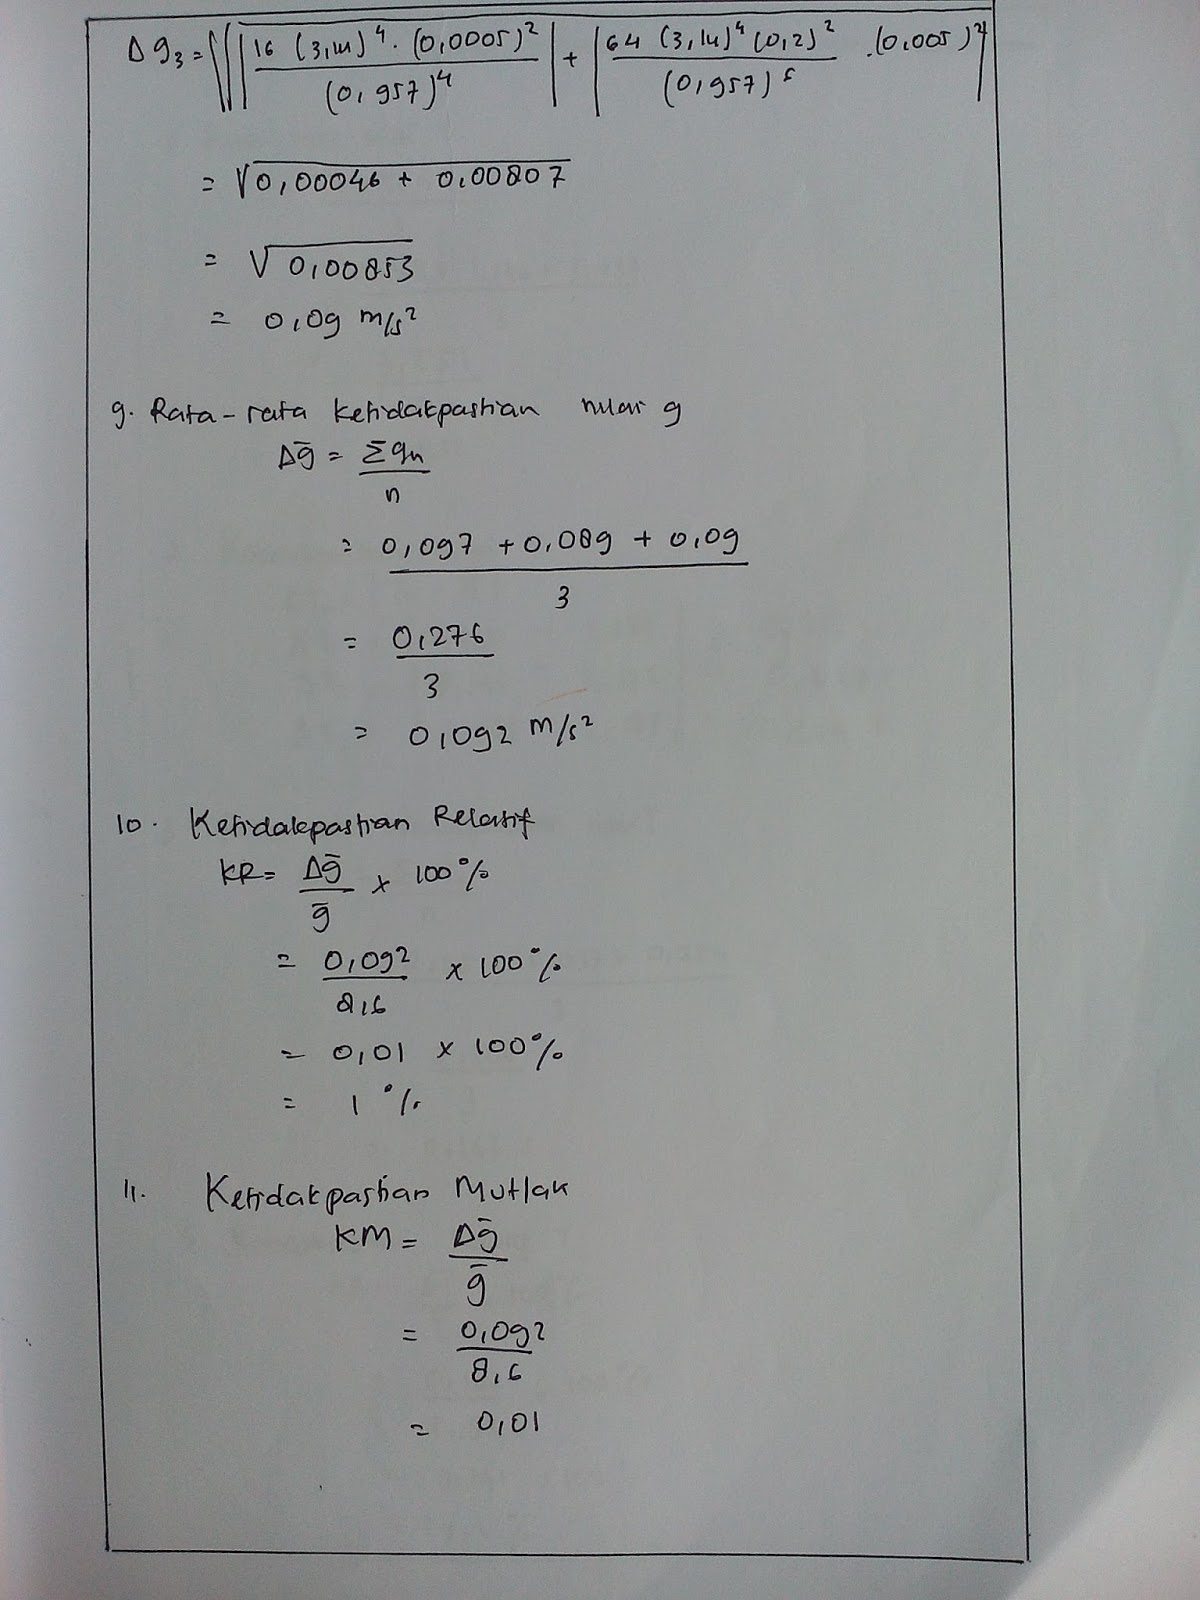 Δg₃ = √(|16 (3,14)⁴ · (0,0005)² / (0,957)⁴| + |64 (3,14)⁴ (0,2)² / (0,957)⁶ · (0,005)²|)
= √0,00046 + 0,00807
= √0,00853
= 0,09 m/s²
9. Rata-rata Ketidakpastian nilai g
Δḡ = Σgn / n
= 0,097 + 0,089 + 0,09 / 3
= 0,276 / 3
= 0,092 m/s²
10. Ketidakpastian Relatif
KR = Δḡ / ḡ x 100%
= 0,092 / 8,6 x 100%
= 0,01 x 100%
= 1 %
11. Ketidakpastian Mutlak
KM = Δḡ / ḡ
= 0,092 / 8,6
= 0,01